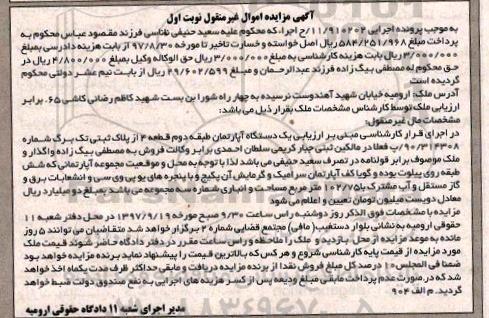 آگهی مزایده اموال غیرمنقول نوبت اول
به موجب پرونده اجرایی ۱۱/۹۱۰۲۰۲/ح اجرا، که محکوم علیه سعید حنیفی نالسی فرزند مقصود عباس محکوم به
پرداخت مبلغ ۵۸۴/۲۵۱/۹۶۸ ریال اصل خواسته و خسارت تاخیر تا مورخه ۹۷/۸/۳۰ از بابت هزینه دادرسی بمبلغ
۳/۰۰۰/۰۰۰ ریال بابت هزینه کارشناسی به مبلغ ۳/۰۰۰/۰۰۰ ریال حق الوکاله وکیل بمبلغ ۴/۸۰۰/۰۰۰ ریال در
حق محکوم له مصطفی بیگ زاده فرزند عبدالرحمان و مبلغ ۲۹/۶۰۲/۵۹۹ ریال از بابت نیم عشر دولتی محکوم
گردیده است
آدرس ملک: ارومیه خیابان شهید آهندوست نرسیده به چهار راه شورا بن بست شهید کاظم رضائی کاشی ۶۵. برابر
ارزیابی ملک توسط کارشناس مشخصات ملک بقرار ذیل می باشد:
مشخصات مال غیرمنقول:
در اجرای قرار کارشناسی مبنی بر ارزیابی یک دستگاه آپارتمان طبقه دوم قطعه ۴ از پلاک ثبتی تک برگ شماره
۹۰/۳۱۴۳۰۸/پ فعلا در مالکین ثبتی جبار کریمی سلطان احمدی برابر وکالت فروش به مصطفی بیگ زاده واگذار و
ملک موصوف برابر قولنامه در تصرف سعید حنیفی می باشد لذا با توجه به محل و موقعیت مجموعه آپارتمانی که شش
طبقه روی پیلوت بوده و گویا کف آپارتمان سرامیک و گرمایش آن پکیج و با پنجره های یو پی وی سی و انشعابات برق و
گاز مستقل و آب مشترک با ۱۰۲/۷۵ متر مربع مساحت و انباری شماره سه مجموعه می باشد بمبلغ دو میلیارد ریال
معادل دویست میلیون تومان تعیین و اعلام می شود
مزایده با مشخصات فوق الذکر روز دوشنبه راس ساعت ۹/۳۰ صبح مورخه ۱۳۹۷/۹/۱۹ در محل دفتر شعبه ۱۱
حقوقی ارومیه به نشانی بلوار دستغیب (مافی) مجتمع قضایی شماره ۲ برگزار خواهد شد متقاضیان می توانند ۵ روز
مانده به موعد مزایده از محل بازدید و ملک را ملاحظه و راس ساعت مقرر در دفتر دادگاه حاضر شوند قیمت ملک
مورد مزایده از قیمت پایه کارشناسی شروع و هر کس که بالاترین قیمت را پیشنهاد نماید برنده مزایده خواهد بود
ضمنا فی المجلس ۱۰ درصد کل مبلغ فروش نقدا از برنده مزایده دریافت و مابقی حداکثر ظرف مدت یکماه اخذ خواهد
شد که در صورت عدم پرداخت مابقی مبلغ ودیعه پس از کسر هزینه های اجرایی به نفع صندوق دولت ضبط خواهد
گردید. م الف ۹۰۴
مدیر اجرای شعبه ۱۱ دادگاه حقوقی ارومیه